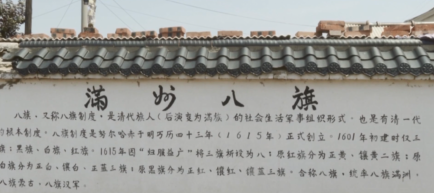 满州八旗
八旗,又称八旗制度,是清代旗人(后演变为满族)的社会生活军事组织形式,也是有清一代
的根本制度。八旗制度是努尔哈赤于明万历四十三年(1615年)正式创立,1601年初建时仅三
旗:黑旗、白旗、红旗。1615年因“归服益广”将三旗析设为八:原红旗分为正黄、镶黄二旗;原
白旗分为正白、镶白、正蓝三旗;原黑旗分为正红、镶红、镶蓝三旗。合称八旗,统率八旗满洲、
八旗蒙古、八旗汉军。